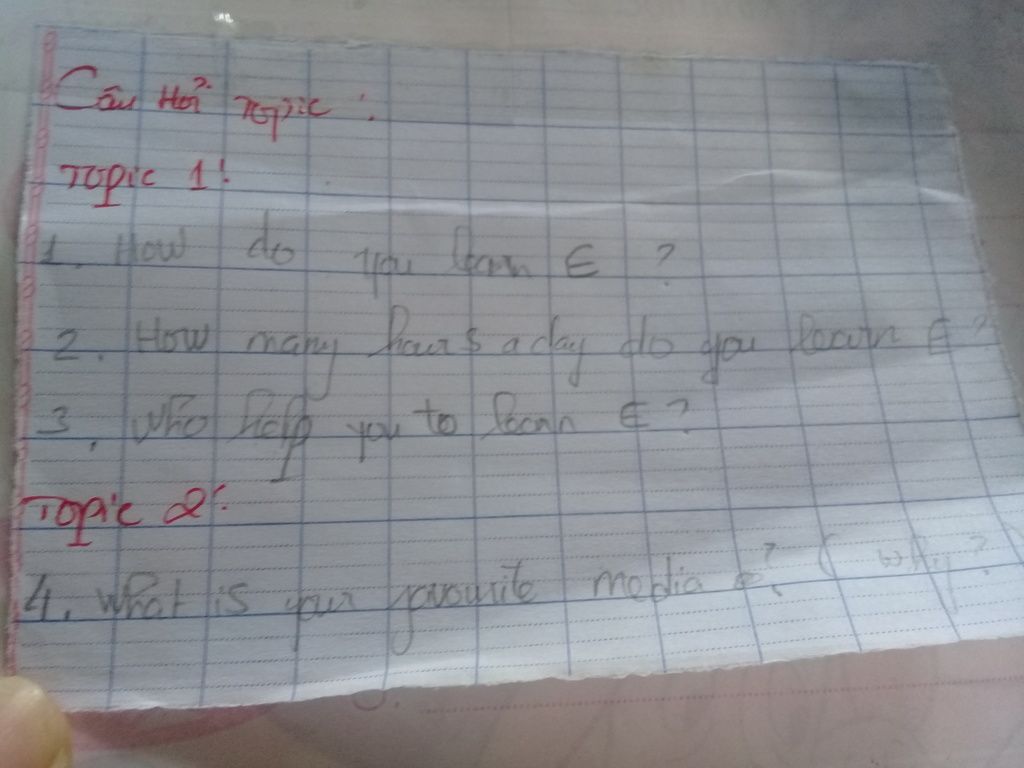 Câu Hỏi Topic :
Topic 1 :
1. How do you learn E ?
2. How many hours a day do you learn E ?
3. Who help you to learn E ?
Topic 2 :
4. What is your favourite media ? ( why ?